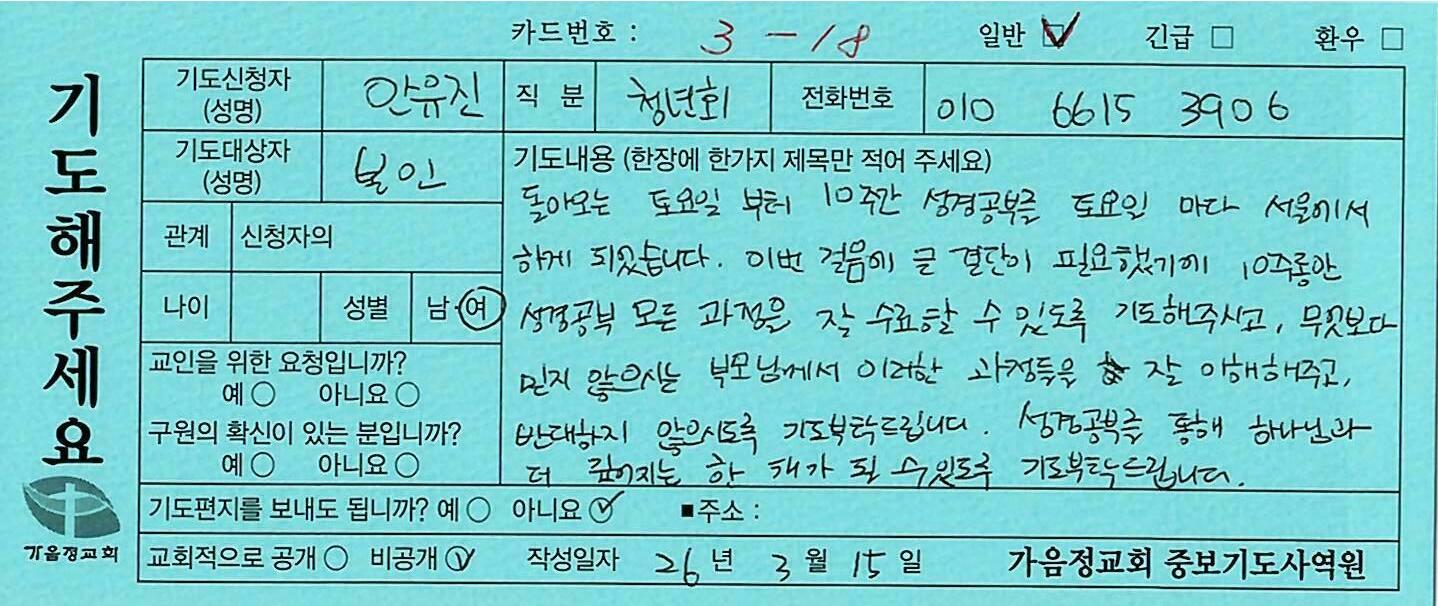 카드번호 : 3 - 18 일반 ☑ 긴급 □ 환우 □
기도해주세요
기도신청자 (성명) 안유진 직 분 청년회 전화번호 010 6615 3906
기도대상자 (성명) 본인
관계 신청자의
나이 성별 남·여
교인을 위한 요청입니까?
예 ○ 아니요 ○
구원의 확신이 있는 분입니까?
예 ○ 아니요 ○
기도내용 (한장에 한가지 제목만 적어 주세요)
돌아오는 토요일 부터 10주간 성경공부를 토요일 마다 서울에서
하게 되었습니다. 이번 걸음에 큰 결단이 필요했기에 10주동안
성경공부 모든 과정을 잘 수료할 수 있도록 기도해주시고, 무엇보다
믿지 않으시는 부모님께서 이러한 과정들을 잘 이해해주고,
반대하지 않으시도록 기도부탁드립니다. 성경공부를 통해 하나님과
더 깊어지는 한 해가 될 수 있도록 기도부탁드립니다.
기도편지를 보내도 됩니까? 예 ○ 아니요 ☑ ■주소 :
교회적으로 공개 ○ 비공개 ☑ 작성일자 26 년 3 월 15 일 가음정교회 중보기도사역원
가음정교회